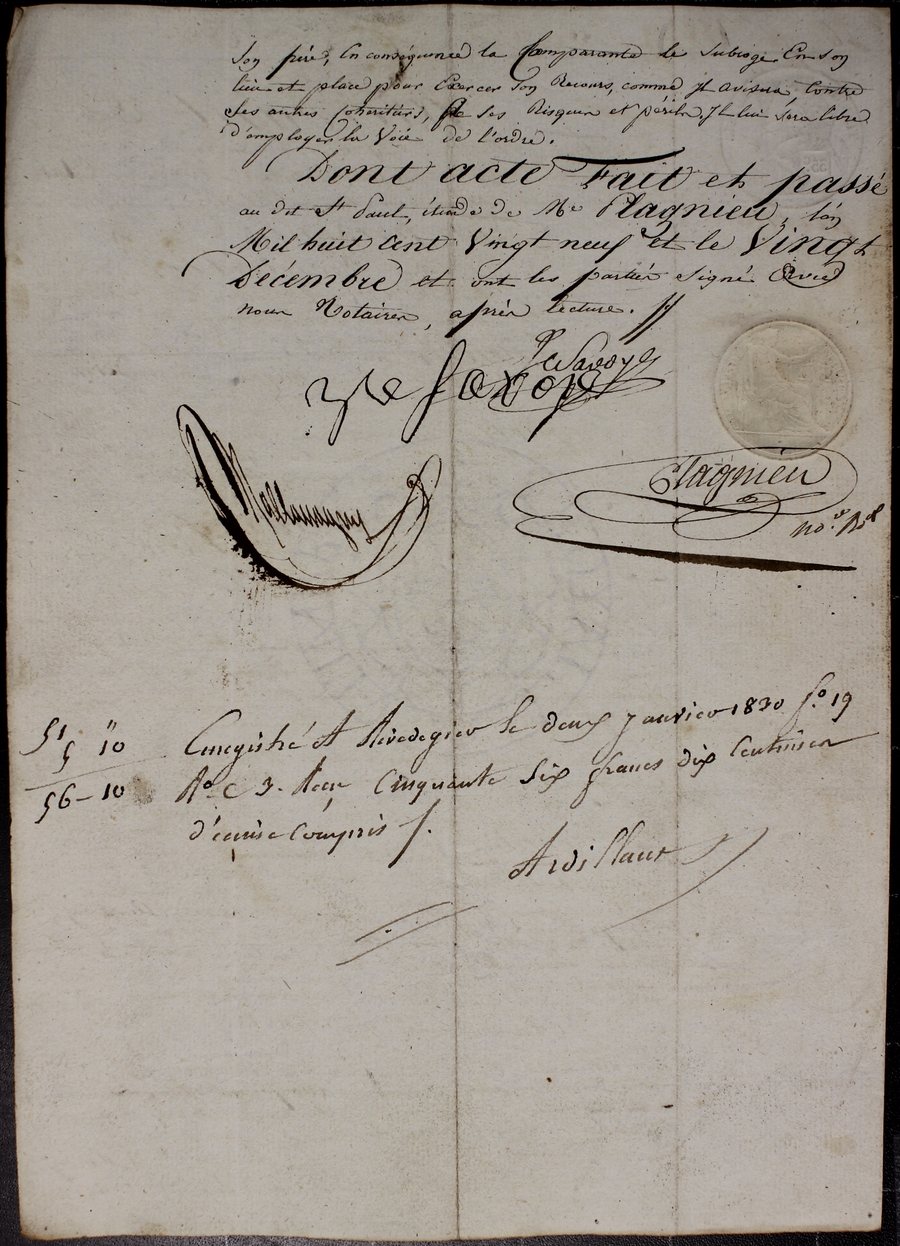 Son père, En conséquence la Comparante le subroge En son
lieu et place pour Exercer son Recours, comme Il avisera contre
Ses autres Cohéritiers, à ses Risques et périls, Il lui sera libre
d'employer la Voie de l'ordre.
Dont acte Fait et passé
au dit St Paul, étude de Me Plagnieu, l'an
Mil huit cent Vingt neuf et le Vingt
Décembre et ont les parties Signé Avec
nous Notaires, après lecture. //
Savoye
Savoye
Plagnieu
no.re
51 "
5 10
56 - 10
Enregistré A Rivedegier le deux Janvier 1830 f.o 19
R.o C 3. Reçu Cinquante Six francs dix Centimes
d'écime Compris
Ardillaut